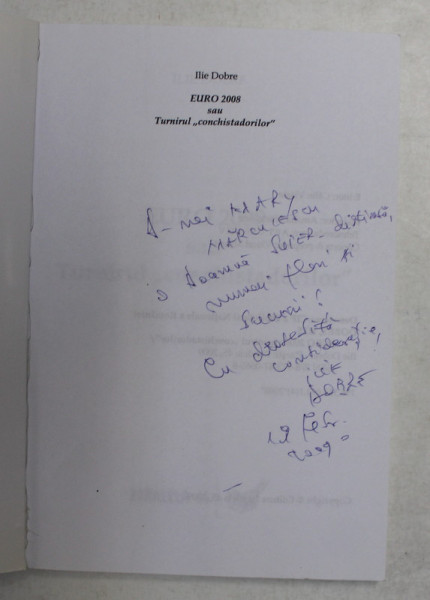 Ilie Dobre
EURO 2008
sau
Turnirul „conchistadorilor”
D-nei MARY
MĂRCULESCU
o Doamnă SUPER-distinsă,
numai flori și
bucurii!
Cu deosebită
considerație,
Ilie
DOBRE
19 Febr.
2009